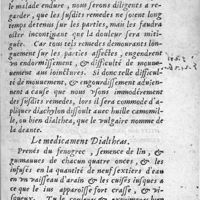 le malade endure, nous serons diligens a re-
garder, que les susdits remedes ne soient long
temps detenus sur les parties, mais les faudra
oster incontinent que la douleur sera miti-
guée. Car tous tels remedes demourants lon-
guement sur les parties affectes, engendrent
vn endormissement, & difficulté de mouue-
ment aux ioinctures. Si donc telle difficulté
de mouuement, & engourdissement aduient
a cause que nous ayons immoderément
des susdits remedes, lors il sera commode d'ap-
pliquer diachylon dissoult auec huille camomil-
le, ou bien dialthea, que le vulgaire nomme
la deante.
Le medicament Dialtheas.
Prenés du fenugrec, semence de lin, &
guimauues de chacun quatre onces, & les
infusés en la quantité de neuf sextiers d'eau
en vn vaisseau d'arain & les cuisés iusques a
ce que le ius apparoisse fort crasse, & vis-
queux. Tu le couleras & exprimeras bien